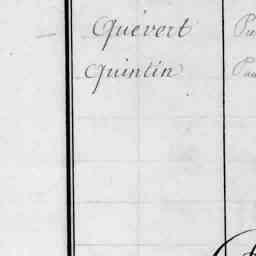 Quévert
Quintin